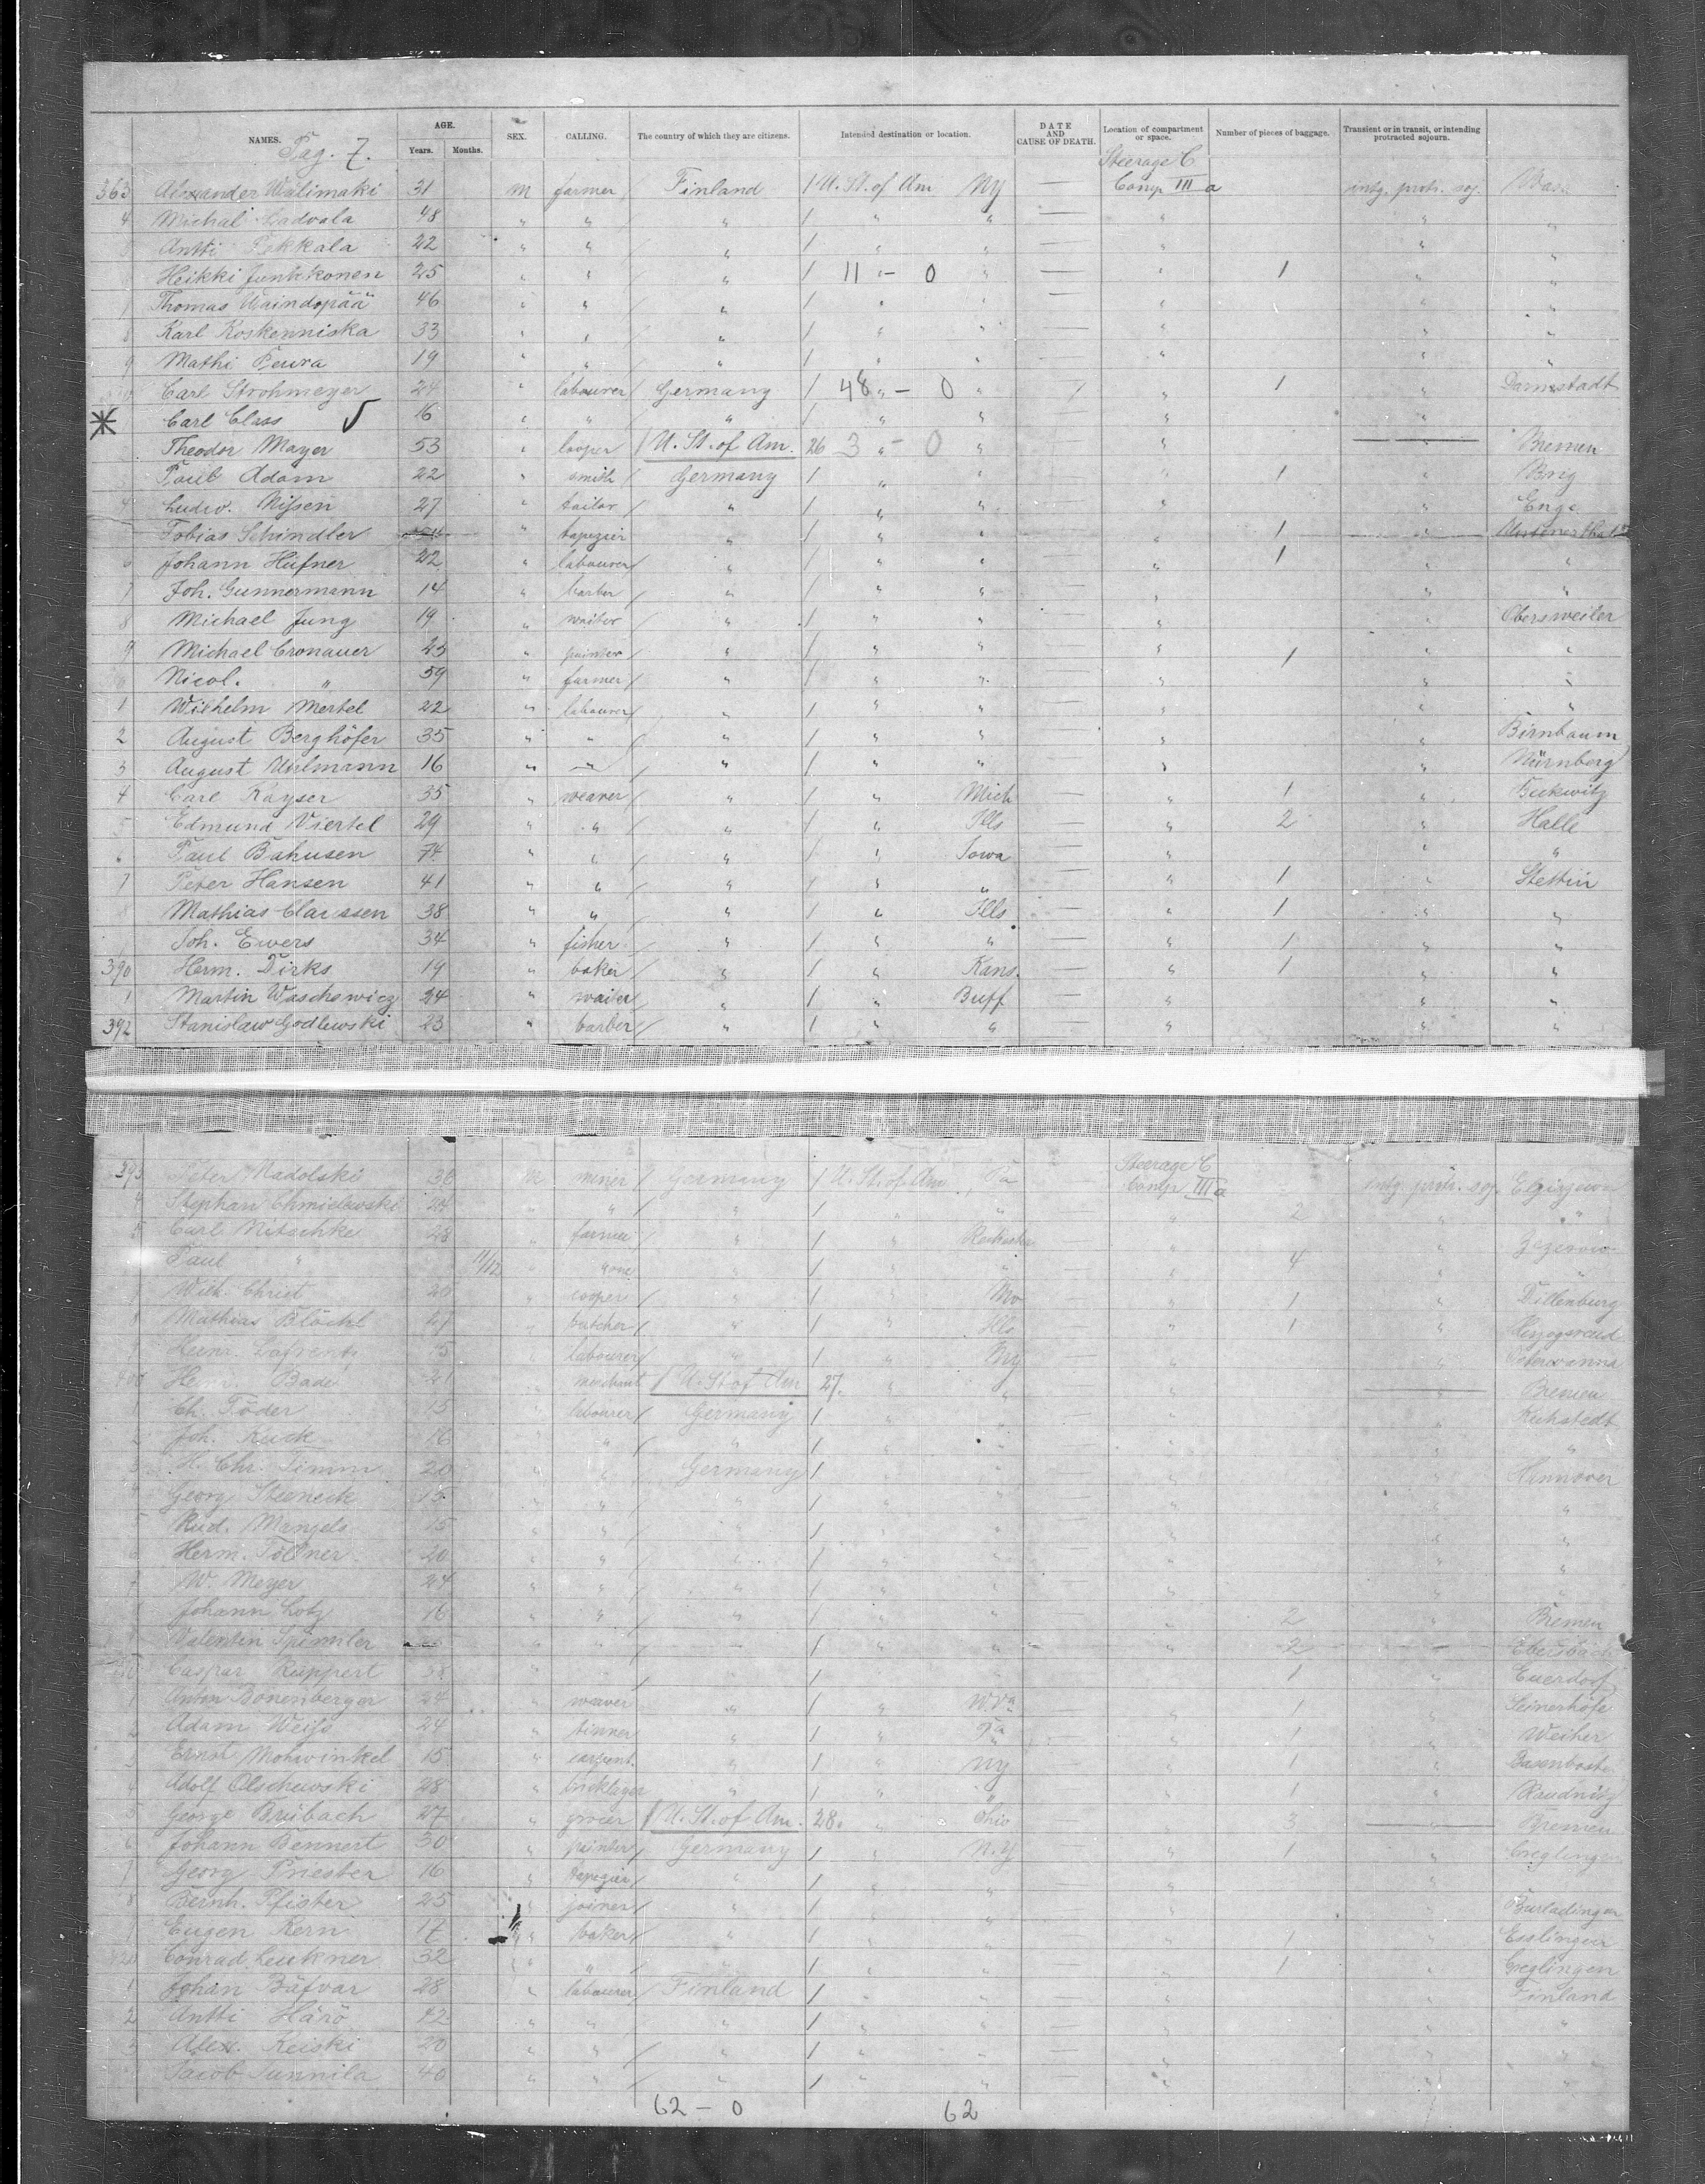 NAMES. AGE. Years. Months. SEX. CALLING. The country of which they are citizens. Intended destination or location. DATE AND CAUSE OF DEATH. Location of compartment or space. Number of pieces of baggage. Transient or in transit, or intending protracted sojourn.
Pag. 7. Steerage C
363 Alexander Walimaki 31 m farmer / Finland / U. St. of Am Ny — Comp III a intg. protr. soj.
4 Michal 48 " " / " / " " — " " "
Antti Pokkala 22 " " / " / " " — " " "
Heikki Junkkonen 25 " " / " / 11 " – 0 " — " 1 " "
Thomas 46 " " / " / " " — " " "
8 Karl Koskenniska 33 " " / " / " " — " " "
9 Mathi Peura 19 " " / " / " " — " " "
Carl Strohmeyer 24 " labourer / Germany / 48 " – 0 " " 1 " Darmstadt
Carl Class 16 " " / " / " " — " "
Theodor Mayer 53 " cooper / U. St. of Am. 26 3 " – 0 " " — " — Bremen
Paul Adam 22 " smith / Germany / " " — " 1 " Brig
4 Ludw. Nissen 27 " tailor / " / " " — " " Enge
Tobias Schindler " tapezier " / " " — " 1 "
6 Johann Hüfner 22 " labourer / " / " " — " 1 " "
7 Joh. Gunnermann 14 " barber / " / " " — " " "
8 Michael Jung 19 " waiter / " / " " — " " Obersweiler
9 Michael Cronauer 23 " painter / " / " " — " 1 " "
Nicol. " 59 " farmer / " / " " — " " "
1 Wilhelm Mertel 22 " labourer / " / " " — " " "
2 August Berghöfer 35 " " / " / " " — " " Birnbaum
3 August Uhlmann 16 " " / " / " " — " " Nürnberg
4 Carl Kayser 35 " weaver / " / " Mich — " 1 "
5 Edmund Viertel 29 " " / " / " Ills — " 2 " Halle
6 Paul Bahusen 74 " " / " / " Iowa — " " "
7 Peter Hansen 41 " " / " / " " — " 1 " Stettin
8 Mathias Claussen 38 " " / " / " Ills — " 1 " "
Joh. Ewers 34 " fisher / " / " " — " 1 " "
390 Herm. Dirks 19 " baker / " / " Kans. — " 1 " "
1 Martin Waschowicz 24 " waiter / " / " Buff — " " "
392 Stanislaw Godlewski 23 " barber / " / " " " " "
Steerage C
393 Peter Nadolski 36 m miner / Germany / U. St. of Am Pa Comp III a intg. protr. soj.
4 Stephan Chmielewski 24 " " / " / " " — " 2 " "
5 Carl Nitschke 28 " farmer / " / " Rochester — " "
Paul " 11/12 " none " / " " — " 4 " "
Wilh. Christ 26 " cooper / " / " Mo — " 1 " Dillenburg
8 Mathias Blöchl 27 " butcher / " / " Ills — " 1 "
Heinr. 15 " labourer / " / " Ny — " " Osterwanna
400 Herm. Bade 21 " merchant / U. St of Am 27. " " — " — " — Bremen
1 Ch. Töder 15 " labourer / Germany / " " — " " Kuhstedt
2 Joh. Kück 16 " " / " / " " — " " "
3 H. Chr. Timm 20 " " / Germany / " " — " " Hannover
4 Georg Steeneck 15 " " / " / " " — " " "
5 Rud. Mangels 15 " " / " / " " — " " "
6 Herm. Töllner 20 " " / " / " " — " " "
7 W. Meyer 24 " " / " / " " — " " "
Johann Lotz 16 " " / " / " " — " 2 " Bremen
Valentin Spinnler " " / " / " " — " 2 — Ebersbach
410 Caspar Ruppert " " " / " " — " 1 " Euerdorf
1 Anton Bonenberger 24 " weaver " / " W.Va — " 1 "
2 Adam Weiss 24 " tinner / " / " Pa — " 1 " Weiher
3 Ernst Mohwinkel 15 " carpent. " / " Ny — " 1 "
4 Adolf Olschewski 28 " bricklayer " / " " — " 1 " Raudnitz
5 George Breibach 27 " grocer / U. St. of Am. 28. " Ohio — " 3 — " — Bremen
6 Johann Bennert 50 " painter / Germany / " N.Y — " 1 " Creglingen
7 Georg Priester 16 " tapezier / " / " " — " "
8 Bernh. Pfister 25 " joiner / " / " " — " " Burladingen
9 Eugen Kern 17 " baker / " / " " — " 1 " Esslingen
420 Conrad Leukner 32 " " " / " " — " 1 " Creglingen
1 Johan Bäfvar 28 " labourer / Finland / " " — " " Finland
2 Antti Härö 42 " " " / " " — " " "
3 Alex. Keiski 20 " " / " / " " — " " "
Jacob Sunnila 40 " " / " / " " — " " "
62 – 0 62